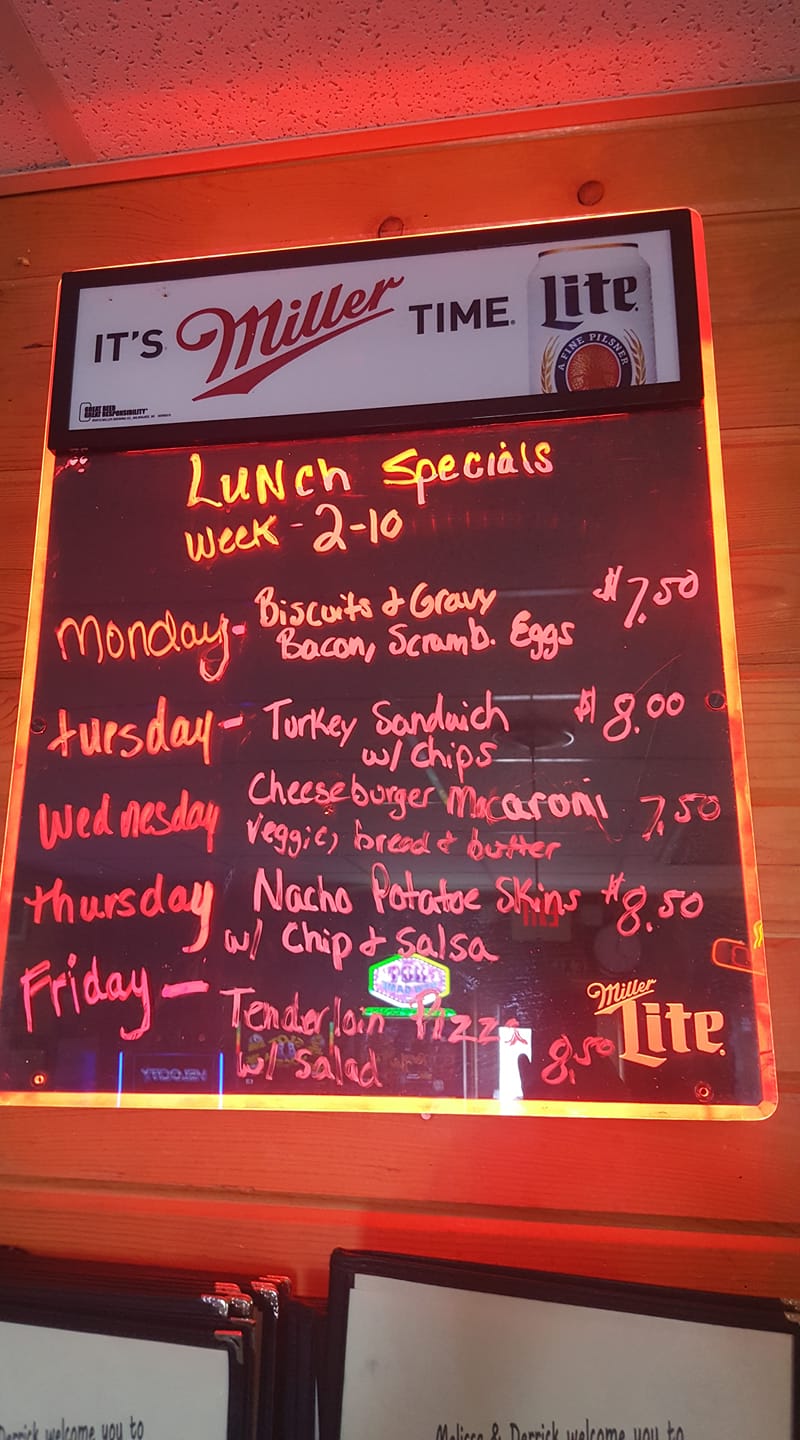 IT'S Miller TIME. Lite
A FINE PILSNER
GREAT BEER
GREAT RESPONSIBILITY
LuNch Specials
Week - 2-10
Monday- Biscuits & Gravy $7.50
Bacon, Scramb. Eggs
tuesday - Turkey Sandwich $8.00
w/ chips
Wednesday Cheeseburger Macaroni 7.50
Veggie, bread & butter
thursday Nacho Potatoe Skins $8.50
w/ Chip & Salsa
Friday - Tenderloin Pizza
w/ Salad 8.50
Miller
Lite
Derrick welcome you to
Melissa & Derrick welcome you to